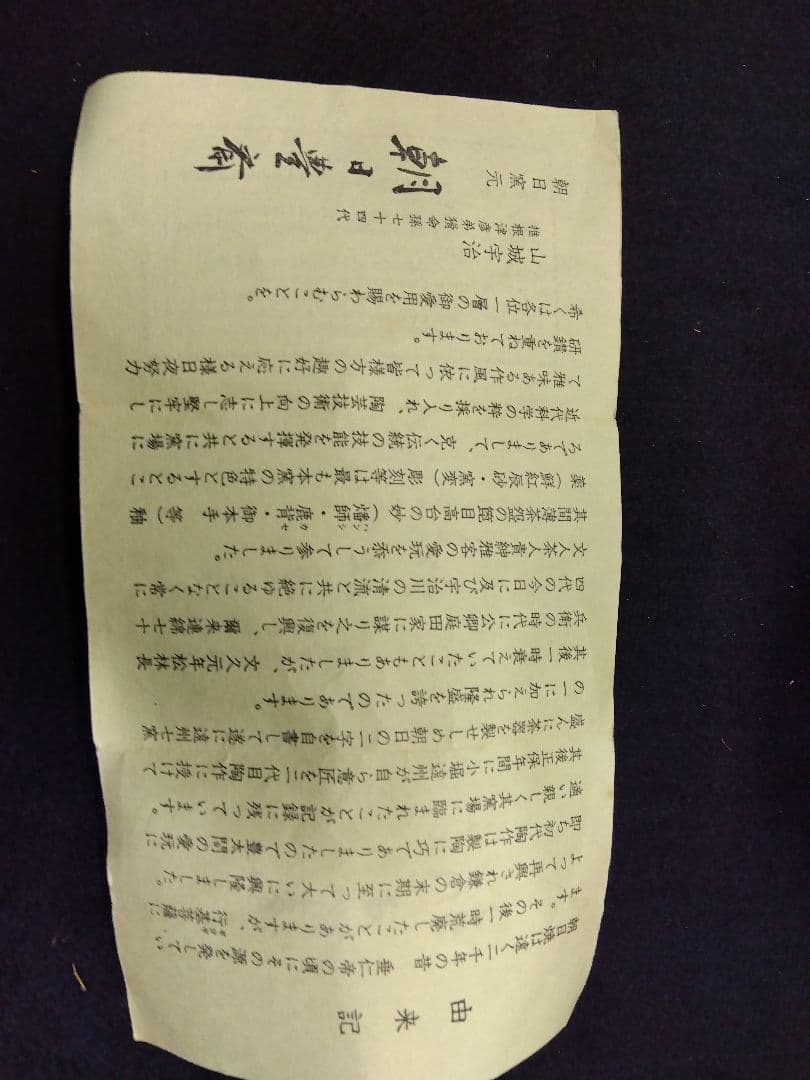 由来記
朝日焼は遠く二千年の昔　垂仁帝の頃にその源を発してい
ます。その後一時荒廃したことがありますが、行基菩薩に
よって再興され鎌倉の末期に至って大いに興隆しました。
即ち初代陶作は製陶に巧でありましたので豊太閤の愛玩に
適い親しく其窯場に臨まれたことが記録に残っています。
其後正保年間に小堀遠州が自ら意匠を二代目陶作に授けて
盛んに茶器を製せしめ朝日の二字を自書して遂に遠州七窯
の一に加えられ隆盛を誇ったのであります。
其後一時衰えていたこともありましたが、文久元年松林長
兵衛の時代に公卿庭田家に謀り之を復興し、爾来連綿七十
四代の今日に及び宇治川の清流と共に絶ゆることなく常に
文人茶人貴紳雅客の愛玩を忝うして参りました。
其間薄茶盌の箇目高台の妙（燔師・鹿背・御本手　等）釉
薬（鮮紅辰砂・窯変）彫刻等は最も本窯の特色とするとこ
ろでありまして、克く伝統の技能を発揮すると共に窯場に
近代科学の粋を採り入れ、陶芸技術の向上に志し堅牢にし
て雅味ある作風に依って皆様方の趣好に応える様日夜努力
研鑽を重ねております。
希くは各位一層の御愛用を賜わらむことを。
山城宇治
椎根津彦弟猾命孫七十四代
朝日窯元
朝日豊斎